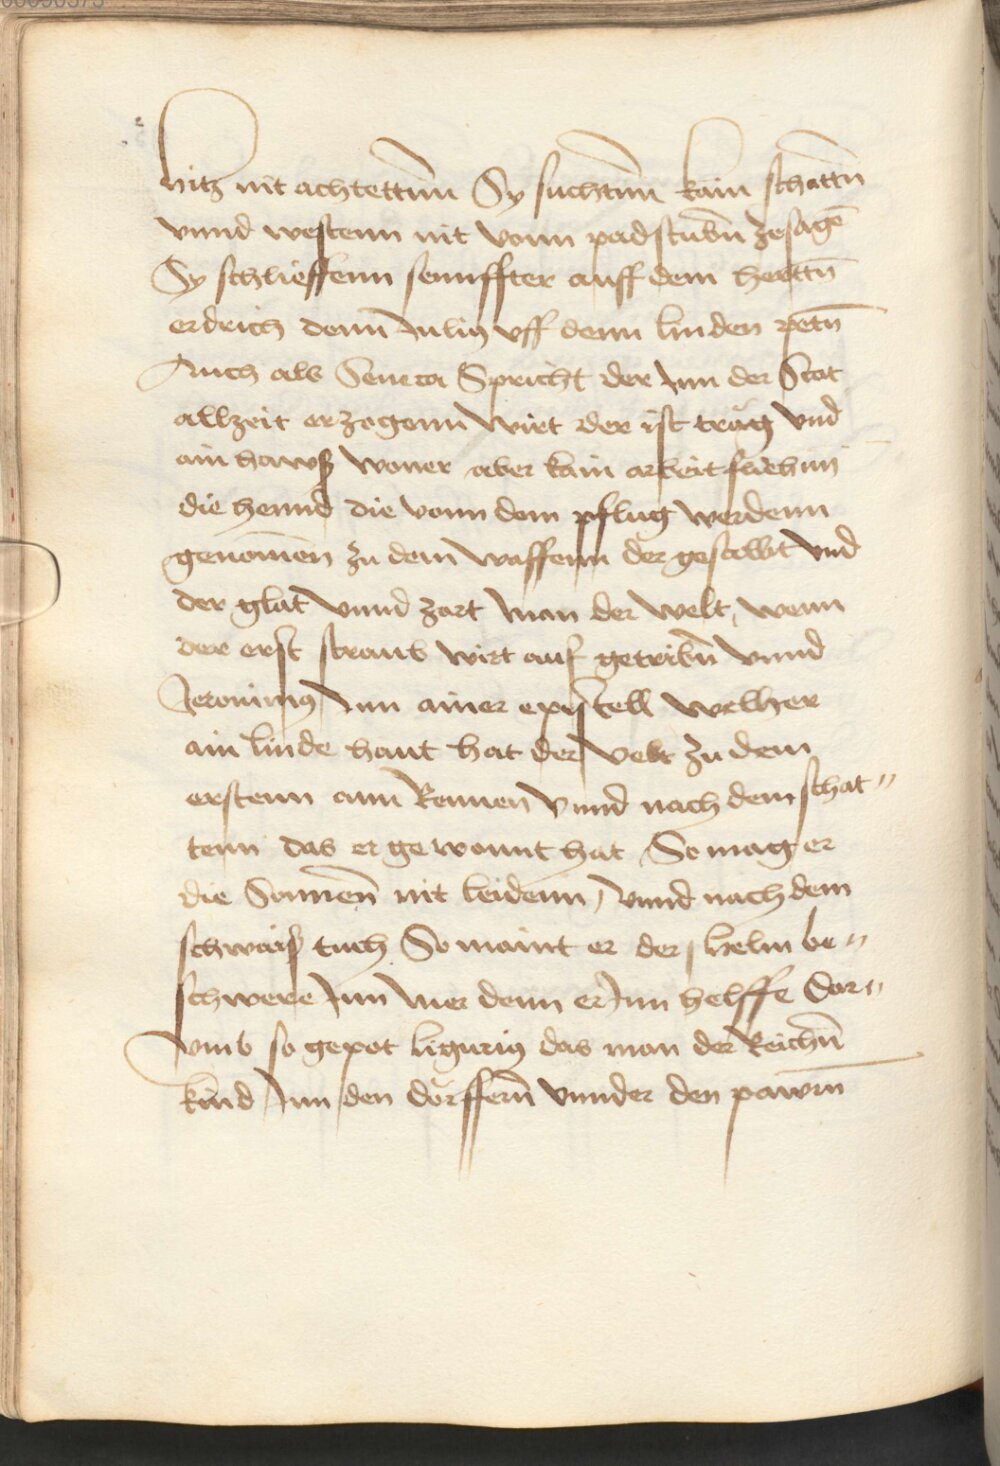 00090373
hitz nit achtettenn Sy suchtenn kain schattn̄
vnnd westenn nit vonn padstubn̄ zesagē
Sy schlieffenn sennffter auff dem herttn̄
erdrich denn Julius vff denn linden petn̄
Auch als Seneca Spricht der Inn der Stat
allzeit erzogenn wirt der ist träg vnd
ain hawß woner aber kain arbeit fliehnn
die hennd die vonn dem pflug werdenn
genomen̄ zu dem waffenn der gesalbt vnd
der glat vnnd zart man der welt, wenn
der erst straub wirt auf getribn̄ vnnd
Jeronimus Inn ainer epystell welher
ain linde haut hat der velt zu dem
erstenn ann Rennen vnnd nach dem schat〃
tenn das er gewonnt hat So mag er
die Sonnen̄ nit leidenn, vnnd nach dem
schwaiß tuch So maint er der helm be〃
schwere Inn mer denn er Inn helffe Dar〃
vmb so gepot ligurius das man der Reichn̄
kind Inn den dörffern̄ vnnder den pawrn̄